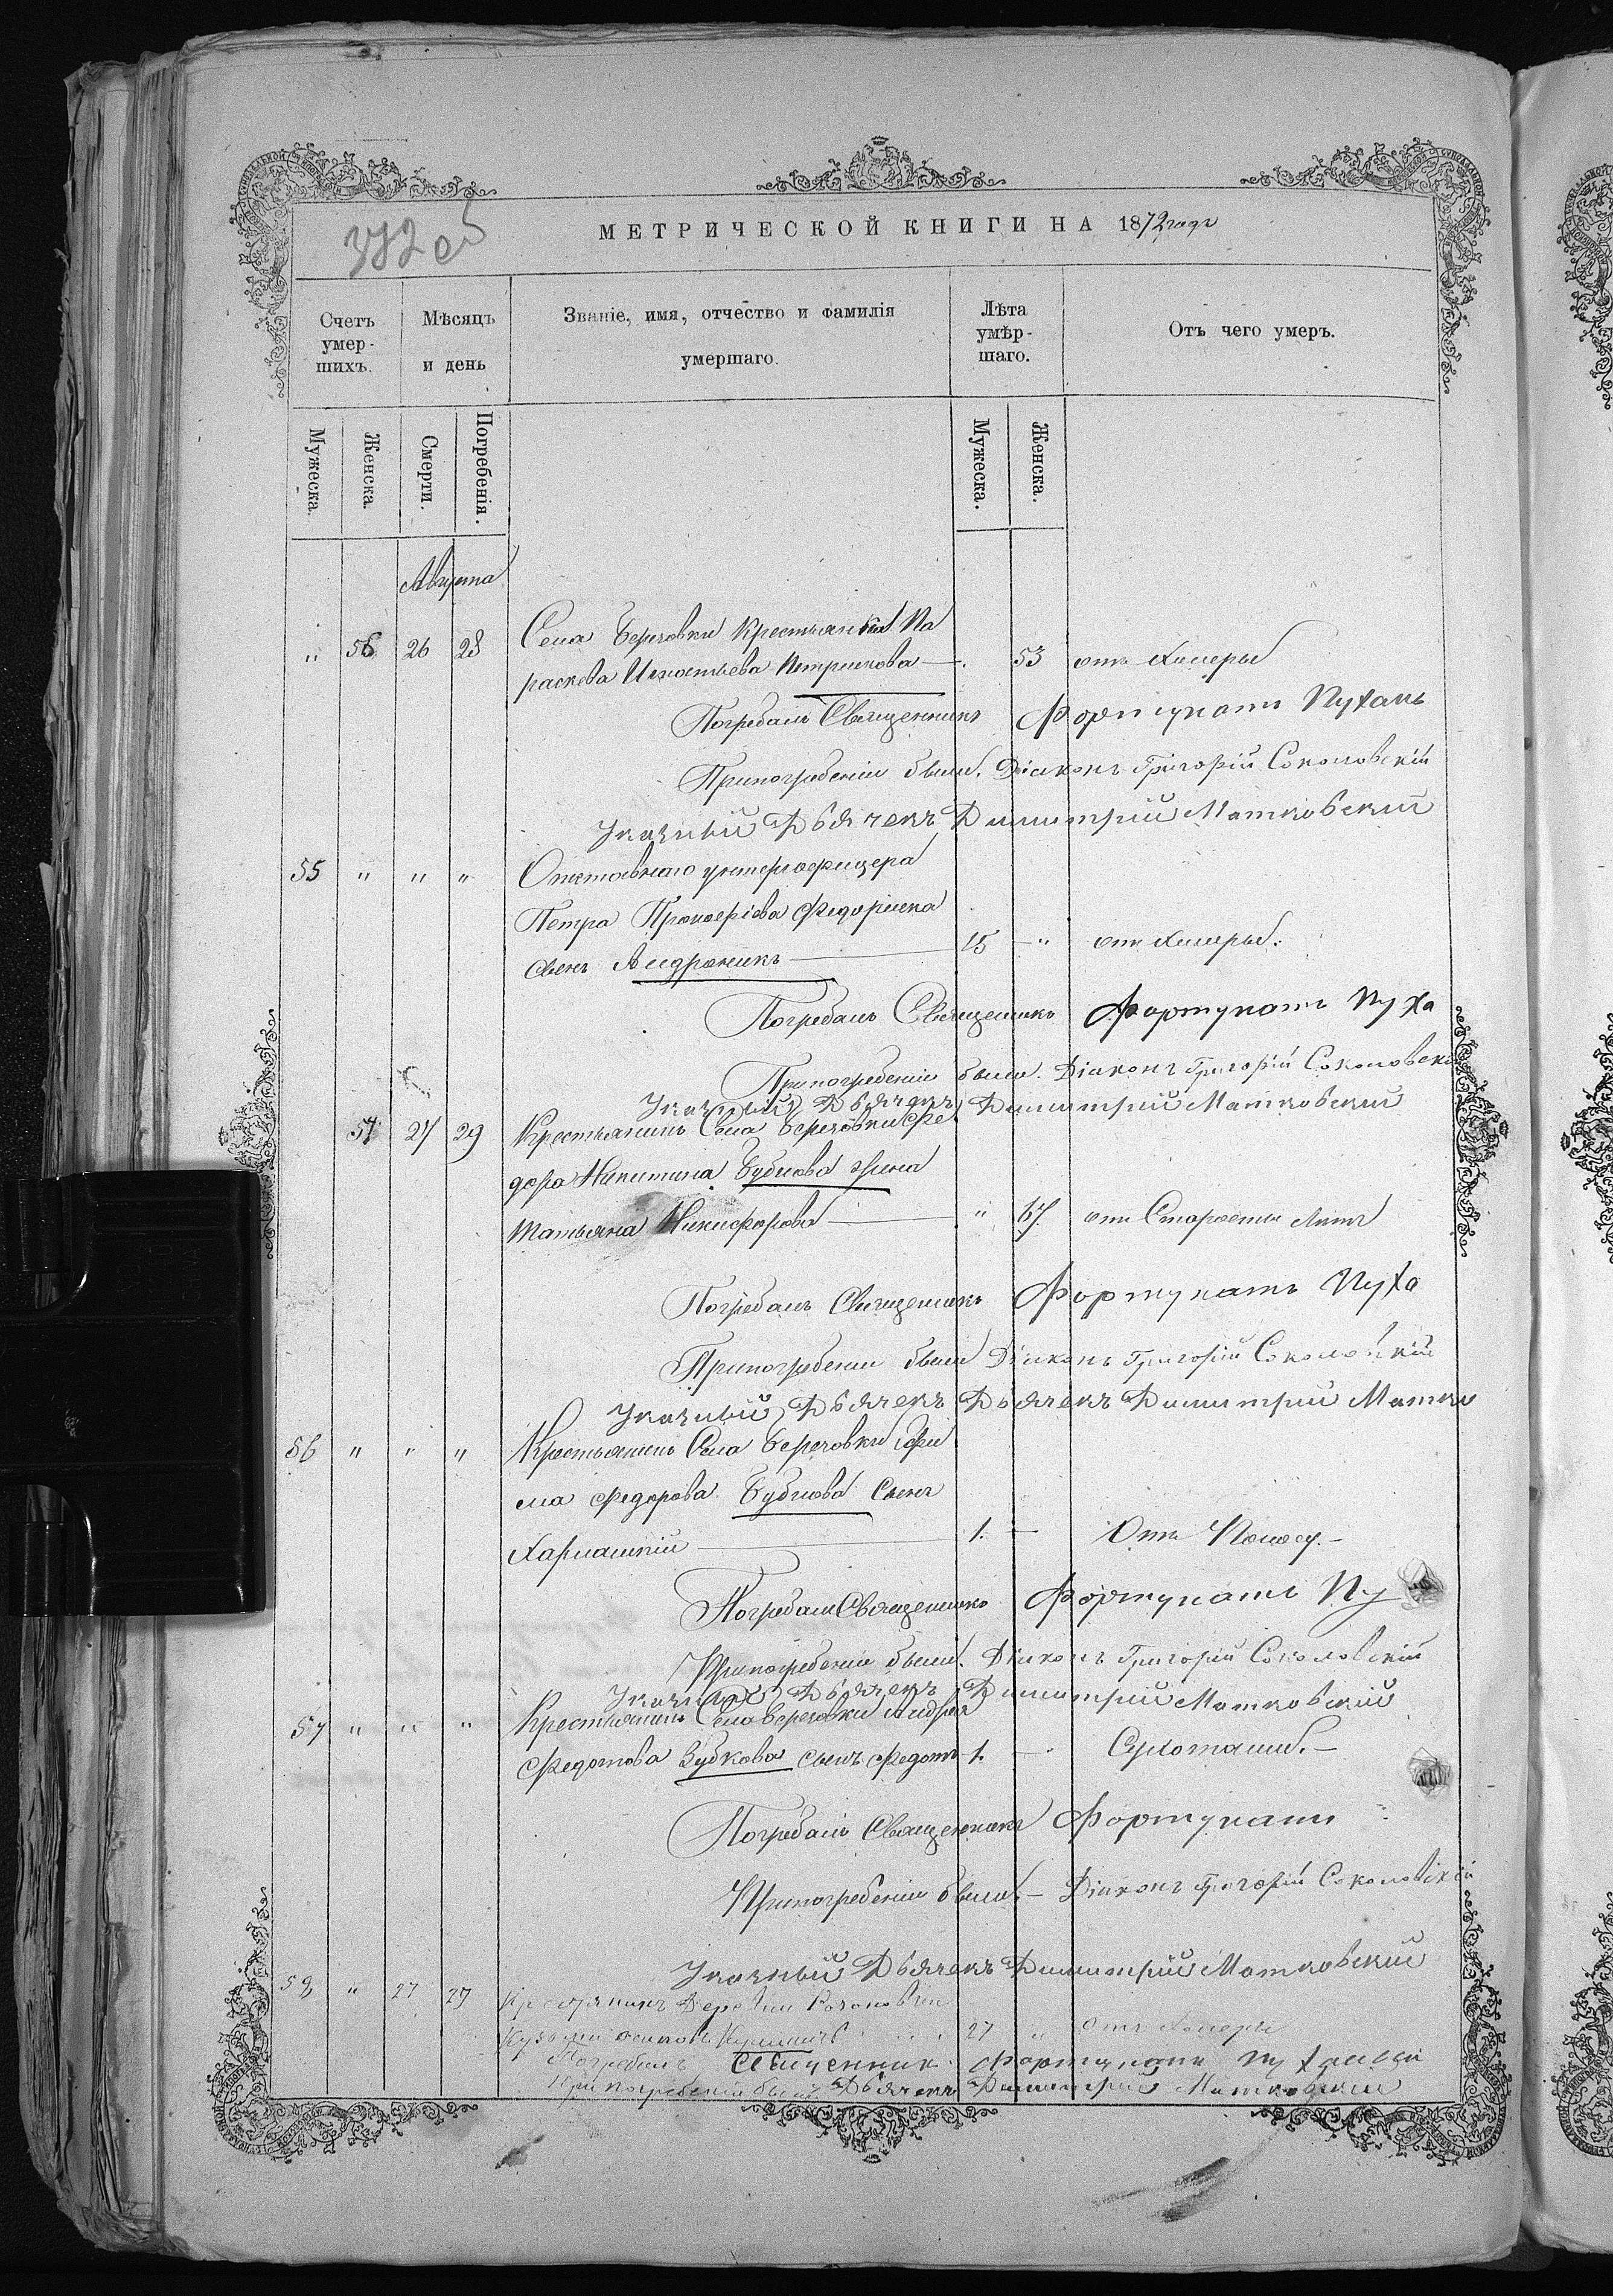 372 об
МЕТРИЧЕСКОЙ КНИГИ НА 1872 годъ
Счетъ умер-шихъ.
Мѣсяцъ и день
Званіе, имя, отчество и фамилія умершаго.
Лѣта умѣр-шаго.
Отъ чего умеръ.
Мужеска.
Женска.
Смерти.
Погребенія.
Мужеска.
Женска.
Августа
" 56 26 28 Села Березовки Крестьянка Па
раскева Игнатьева Петришкова — 53 отъ Холеры
Погребалъ Священникъ Фортунатъ Пухаль
При погребеніи были. Діаконъ Григорій Соколовскій
Указный Дьячекъ Димитрій Матковский
55 " " " Отставнаго унтерофицера
Петра Прокофіева Федорінка
сынъ Андроникъ — 15 — " отъ Холеры.
Погребалъ Священникъ Фортунатъ Пуха
При погребеніи были. Діаконъ Григорій Соколовскій
Указный Дьячекъ Димитрий Матковский
57 27 29 Крестьянинъ Села Березовки Фе
дора Никитина Бубнова жена
Татьяна Никифорова — " 67. отъ Старости Летъ
Погребалъ Священникъ Фортунатъ Пуха
При погребении были Діаконъ Григорій Соколовскій
Указный Дьячекъ Дьячекъ Димитрий Матко
56 " " " Крестьянинъ Села Березовки Ефи
ма Федорова Бубнова Сынъ
Харлампій — 1. — Отъ Поносу. —
Погребалъ Священникъ Фортунатъ Пу
При погребеніи были. Діаконъ Григорій Соколовскій
Указный Дьячекъ Димитрий Матковский
57 " " " Крестьянинъ Села Березовки Андрея
Федотова Зубкова сынъ Федотъ 1. —
Погребалъ Священникъ Фортунатъ
При погребеніи были. — Діаконъ Григорій Соколовскій
Указный Дьячекъ Димитрий Матковский
58 " 27 29 Крестьянинъ Деревни
27 " Отъ Холеры
Погребалъ Священник Фортунатъ
При погребеніи были Дьячекъ Димитрий Матковский